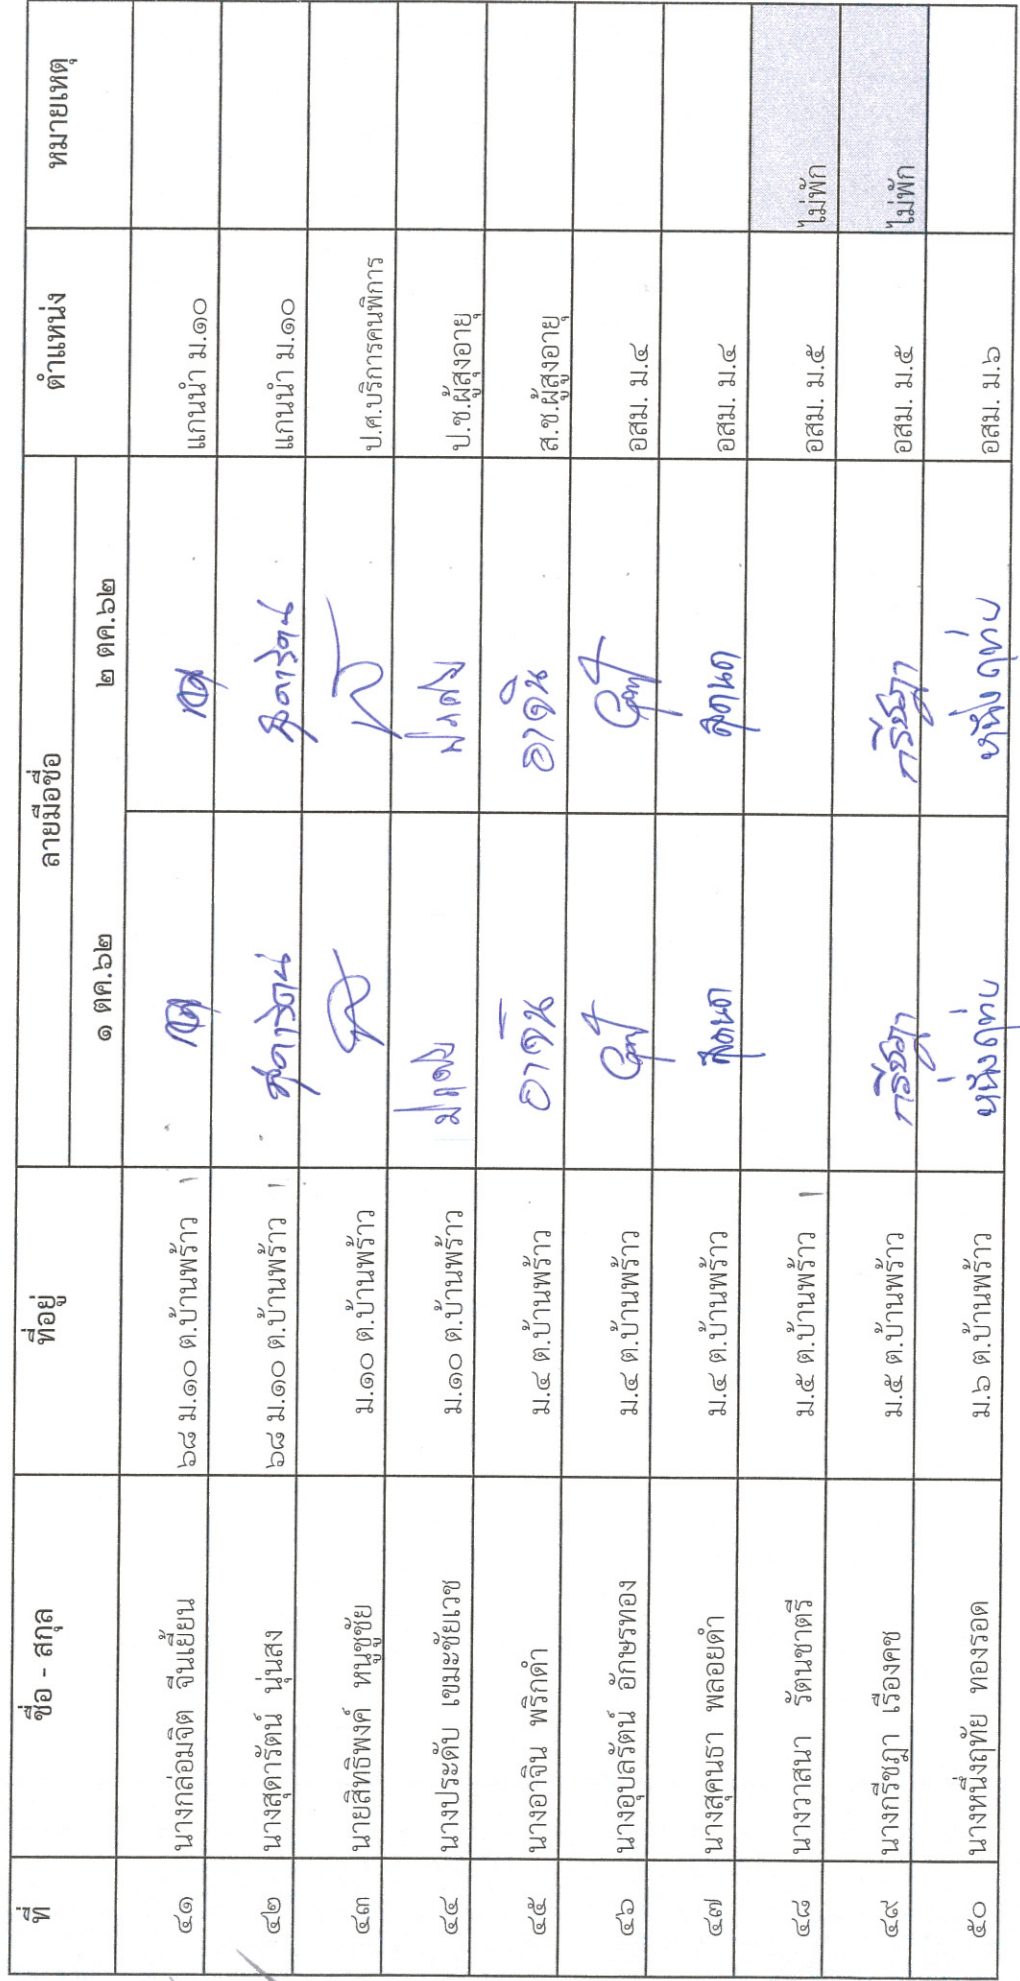 ที่ ชื่อ - สกุล ที่อยู่ ลายมือชื่อ ตำแหน่ง หมายเหตุ
๑ ตค.๖๒ ๒ ตค.๖๒
๔๑ นางกล่อมจิต จีนเยี่ยน ๖๘ ม.๑๐ ต.บ้านพร้าว แกนนำ ม.๑๐
๔๒ นางสุดารัตน์ นุ่นสง ๖๘ ม.๑๐ ต.บ้านพร้าว สุดารัตน์ สุดารัตน์ แกนนำ ม.๑๐
๔๓ นายสิทธิพงค์ หนูชูชัย ม.๑๐ ต.บ้านพร้าว ป.ศ.บริการคนพิการ
๔๔ นางประดับ เขมะชัยเวช ม.๑๐ ต.บ้านพร้าว ป.ช.ผู้สูงอายุ
๔๕ นางอาจิน พริกดำ ม.๔ ต.บ้านพร้าว อาจิน อาจิน ส.ช.ผู้สูงอายุ
๔๖ นางอุบลรัตน์ อักษรทอง ม.๔ ต.บ้านพร้าว อสม. ม.๔
๔๗ นางสุคนธา พลอยดำ ม.๔ ต.บ้านพร้าว อสม. ม.๔
๔๘ นางวาสนา รัตนชาตรี ม.๕ ต.บ้านพร้าว อสม. ม.๕ ไม่พัก
๔๙ นางกรีชฎา เรืองคช ม.๕ ต.บ้านพร้าว กรีชฎา กรีชฎา อสม. ม.๕ ไม่พัก
๕๐ นางหนึ่งฤทัย ทองรอด ม.๖ ต.บ้านพร้าว หนึ่งฤทัย หนึ่งฤทัย อสม. ม.๖